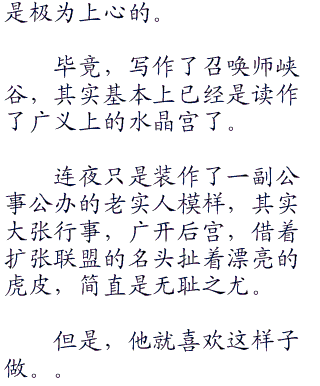 是极为上心的。
毕竟，写作了召唤师峡
谷，其实基本上已经是读作
了广义上的水晶宫了。
连夜只是装作了一副公
事公办的老实人模样，其实
大张行事，广开后宫，借着
扩张联盟的名头扯着漂亮的
虎皮，简直是无耻之尤。
但是，他就喜欢这样子
做。。